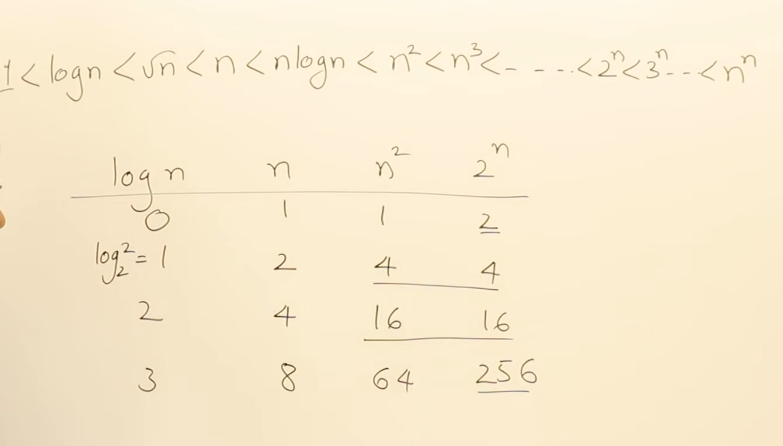 1 < logn < √n < n < nlogn < n² < n³ < - - - .. < 2ⁿ < 3ⁿ - .. < nⁿ
log n n n² 2ⁿ
0 1 1 2
log₂² = 1 2 4 4
2 4 16 16
3 8 64 256